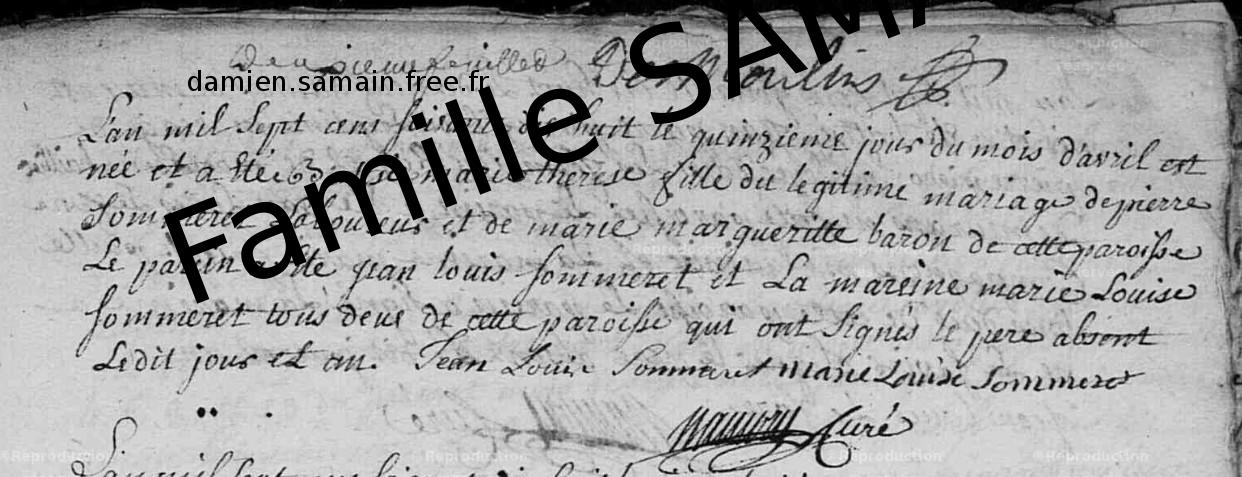 Deuxieme feuilled Desmoulins
damien.samain.free.fr
Famille SAMA
L'an mil sept cent soixante dix huit le quinzieme jour du mois d'avril est
née et a été marie therese fille du legitime mariage de pierre
Sommeret Laboureur et de marie margueritte baron de cette paroisse
Le parein a été jean louis sommeret et La mareine marie Louise
sommeret tous deux de cette paroisse qui ont signés le pere absent
Ledit jour et an. Jean Louis Sommeret marie Louise Sommeret
Curé
L'an mil sept